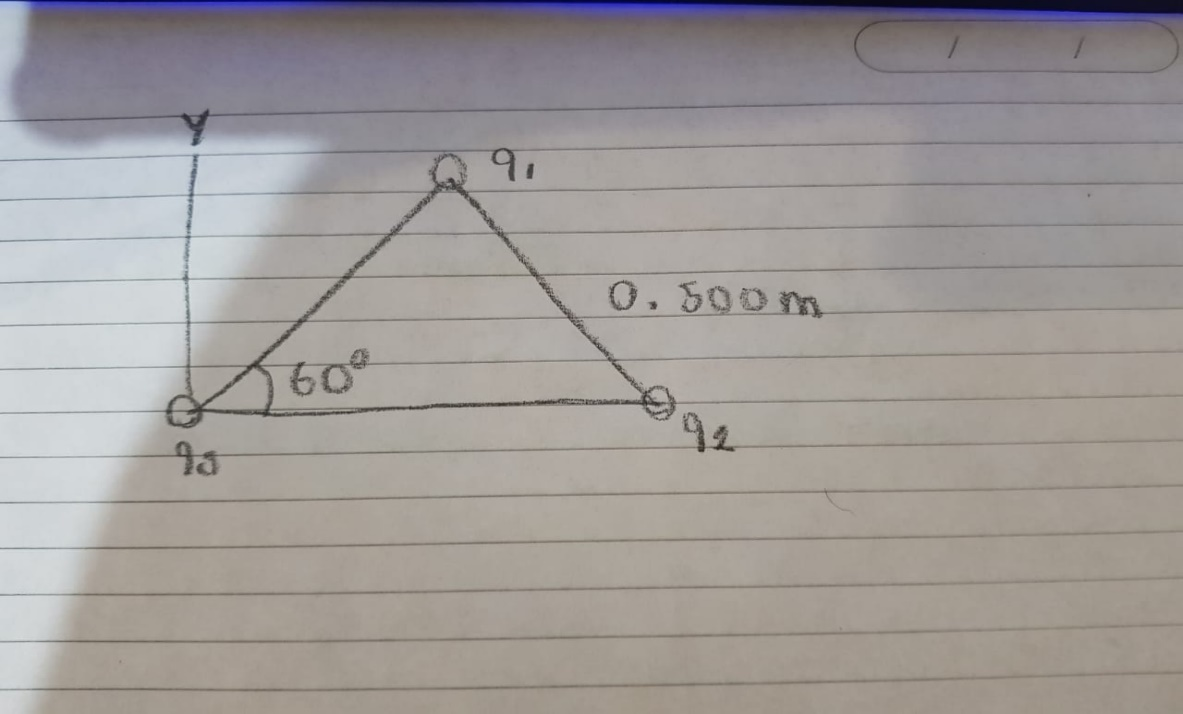 / /
Y
q₁
0.500m
60°
q₃
q₂